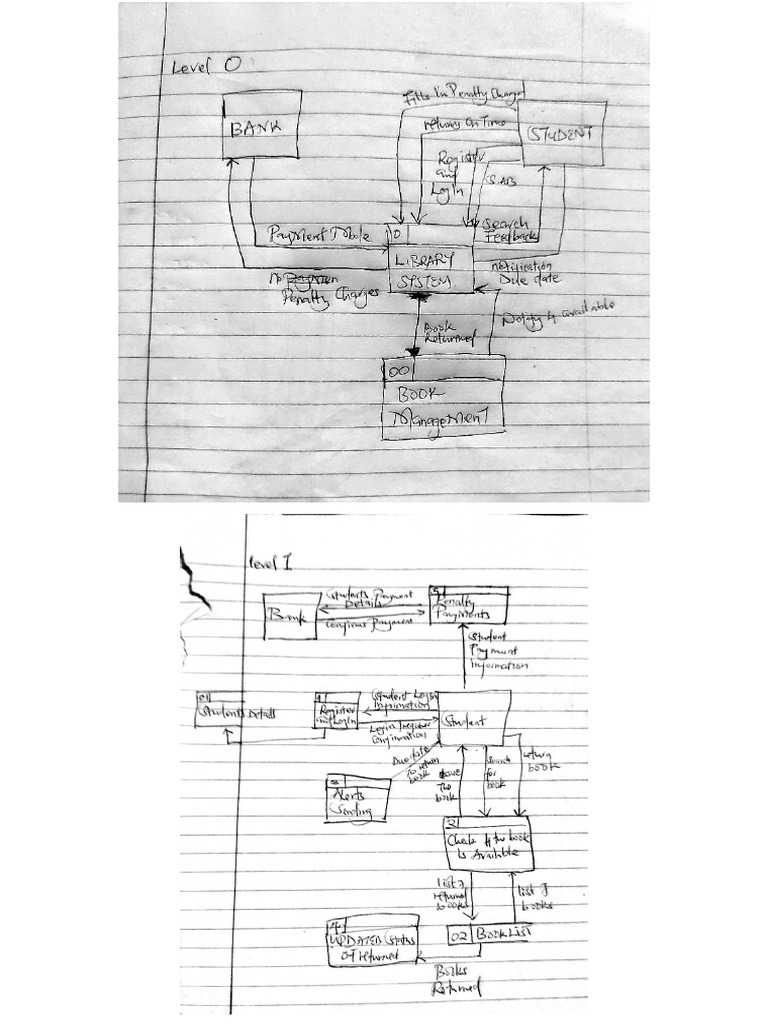 Level 0
Fills In Penalty Charges
BANK
returns On Time
STUDENT
Register
and
LogIn
Search
Feedback
Payment Mode
0
LIBRARY
SYSTEM
notification
Due date
no
Penalty Charges
Book
Returned
Notify if available
00
BOOK
Management
Level I
Students Payment
Details
Bank
Confirms Payment
5
Penalty
Payments
Student
Payment
Information
01
Students Details
1
Register
and LogIn
Student Login
Information
Login/register
Confirmation
Student
Due date
to return
book
Issue
the
book
search
for
book
return
book
Alerts
Sending
2
Check if the book
is Available
List of
returned
books
List of
books
4
UPDATED Status
of returned
02 Book List
Books
Returned